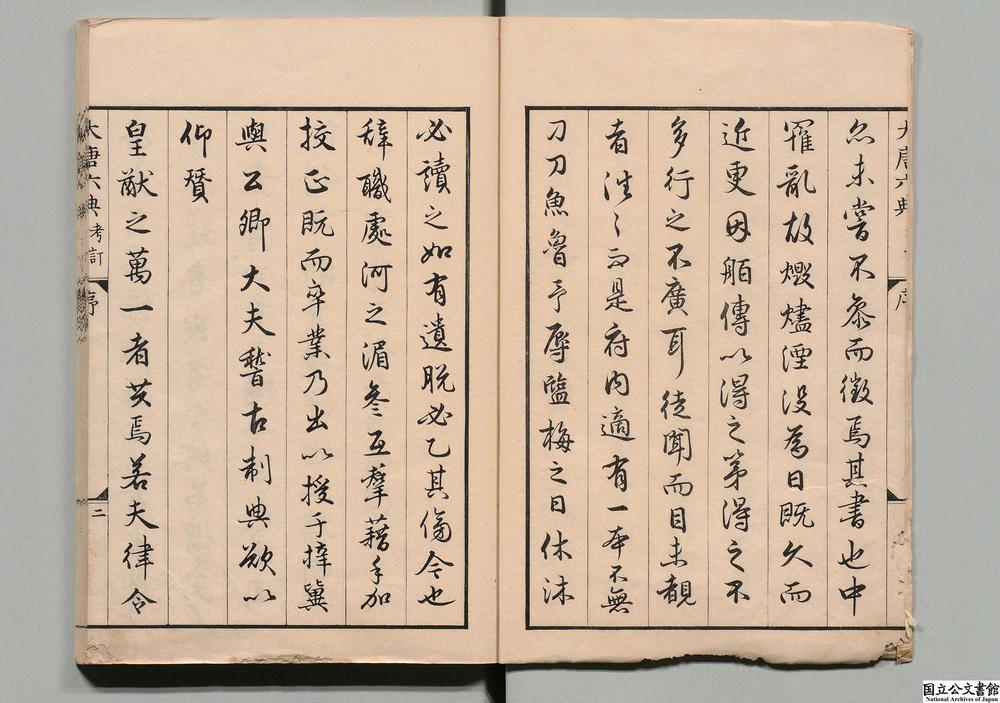 大唐六典
序
尒未嘗不叅而徵焉其書也中
罹亂故燬燼湮没為日既久而
近更因舶傳以得之第得之不
多行之不廣耳徒聞而目未覩
者滔〻而是府内適有一本不無
刀刀魚魯予辱鹽梅之日休沐
必讀之如有遺脱必乙其傷今也
辞職處河之湄叅互羣藉手加
挍正既而卒業乃出以授于梓冀
與公卿大夫稽古制典欲以
仰賛
皇猷之萬一者共焉若夫律令
大唐六典考訂
序
二
国立公文書館
National Archives of Japan